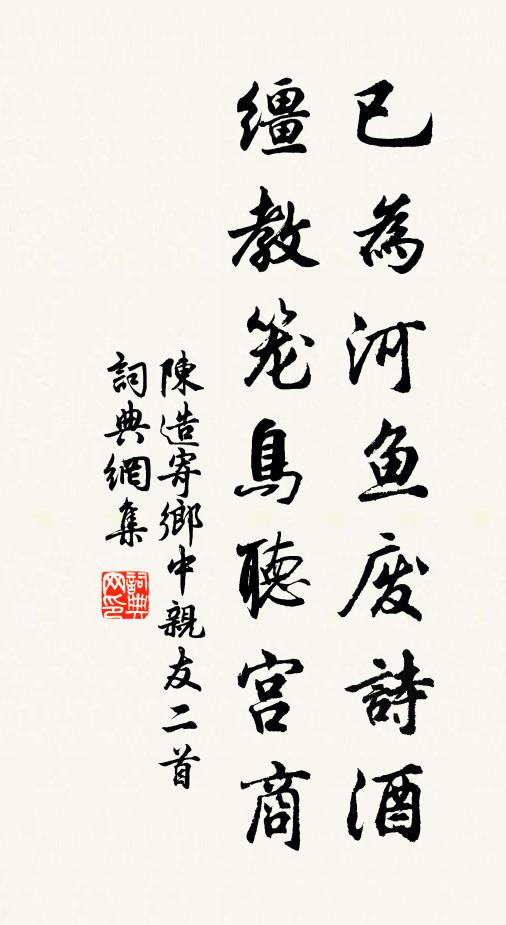 已為河魚废詩酒
繮教笼鳥聽宫商
陳造寄鄉中親友二首
詞典網集
詞典网印